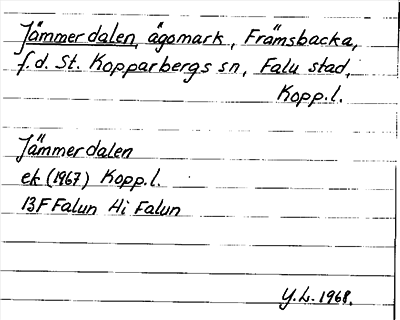 Jämmerdalen, ägomark, Främsbacka,
f.d. St. Kopparbergs sn, Falu stad,
Kopp.l.
Jämmerdalen
ek (1967) Kopp.l.
13F Falun Hi Falun
Y.L. 1968.